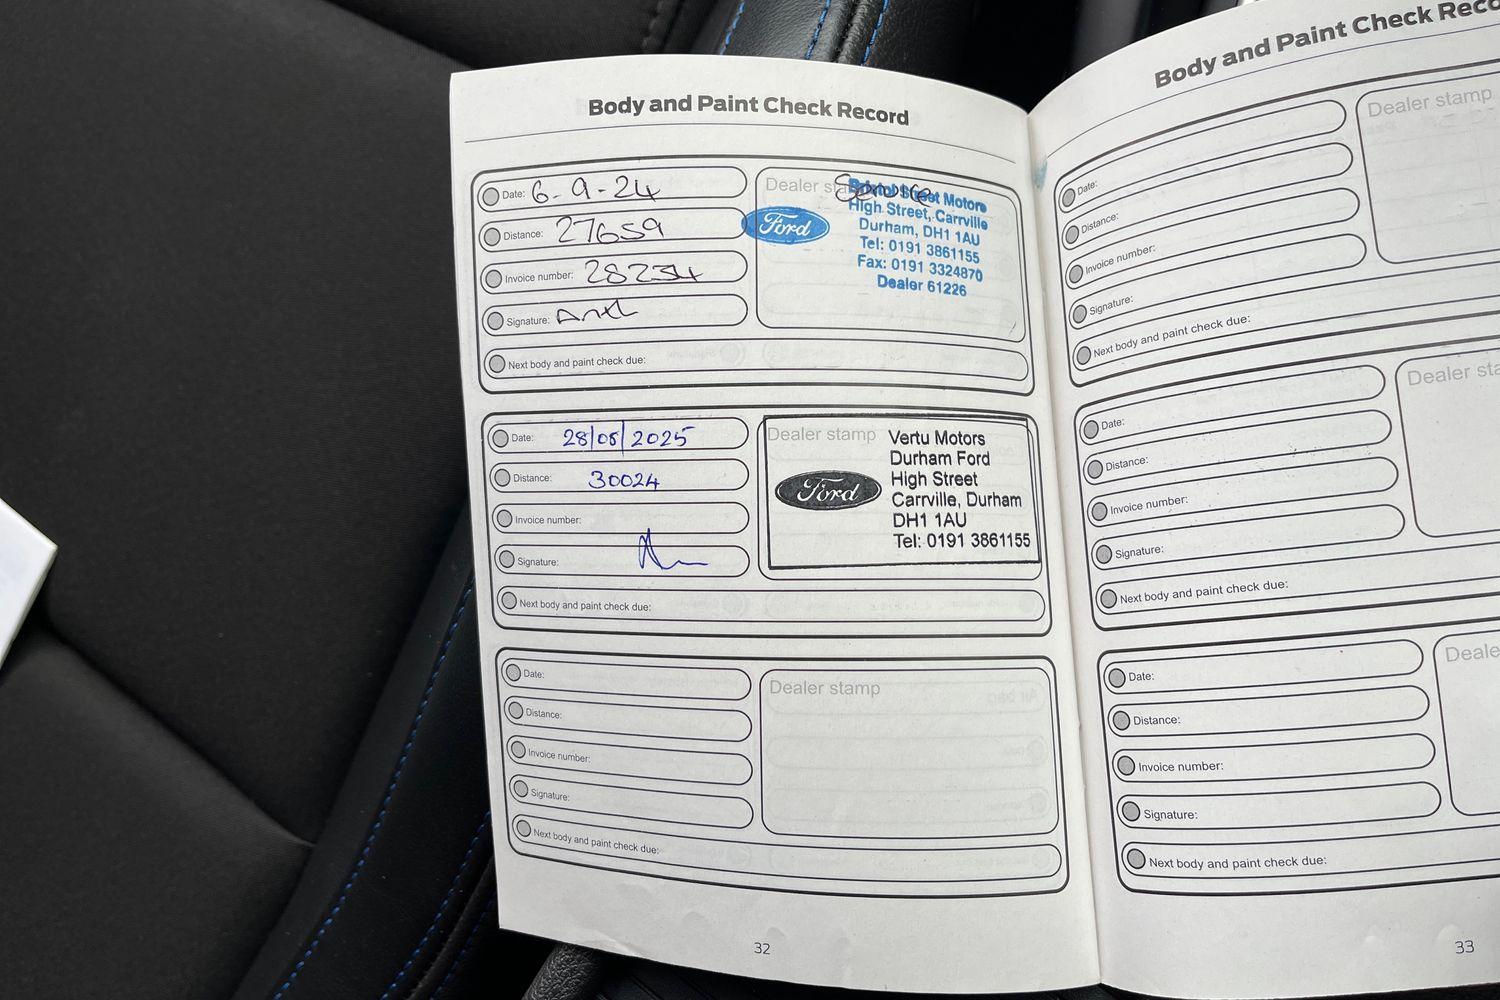 Body and Paint Check Record
Date: 6-9-24
Distance: 27659
Invoice number: 28234
Signature:
Next body and paint check due:
Dealer stamp
Service
Ford
Bristol Street Motors
High Street, Carrville
Durham, DH1 1AU
Tel: 0191 3861155
Fax: 0191 3324870
Dealer 61226
Date: 28/05/2025
Distance: 30024
Invoice number:
Signature:
Next body and paint check due:
Dealer stamp
Ford
Vertu Motors
Durham Ford
High Street
Carrville, Durham
DH1 1AU
Tel: 0191 3861155
Date:
Distance:
Invoice number:
Signature:
Next body and paint check due:
Dealer stamp
32
Body and Paint Check Reco
Date:
Distance:
Invoice number:
Signature:
Next body and paint check due:
Dealer stamp
Date:
Distance:
Invoice number:
Signature:
Next body and paint check due:
Dealer sta
Date:
Distance:
Invoice number:
Signature:
Next body and paint check due:
Deale
33